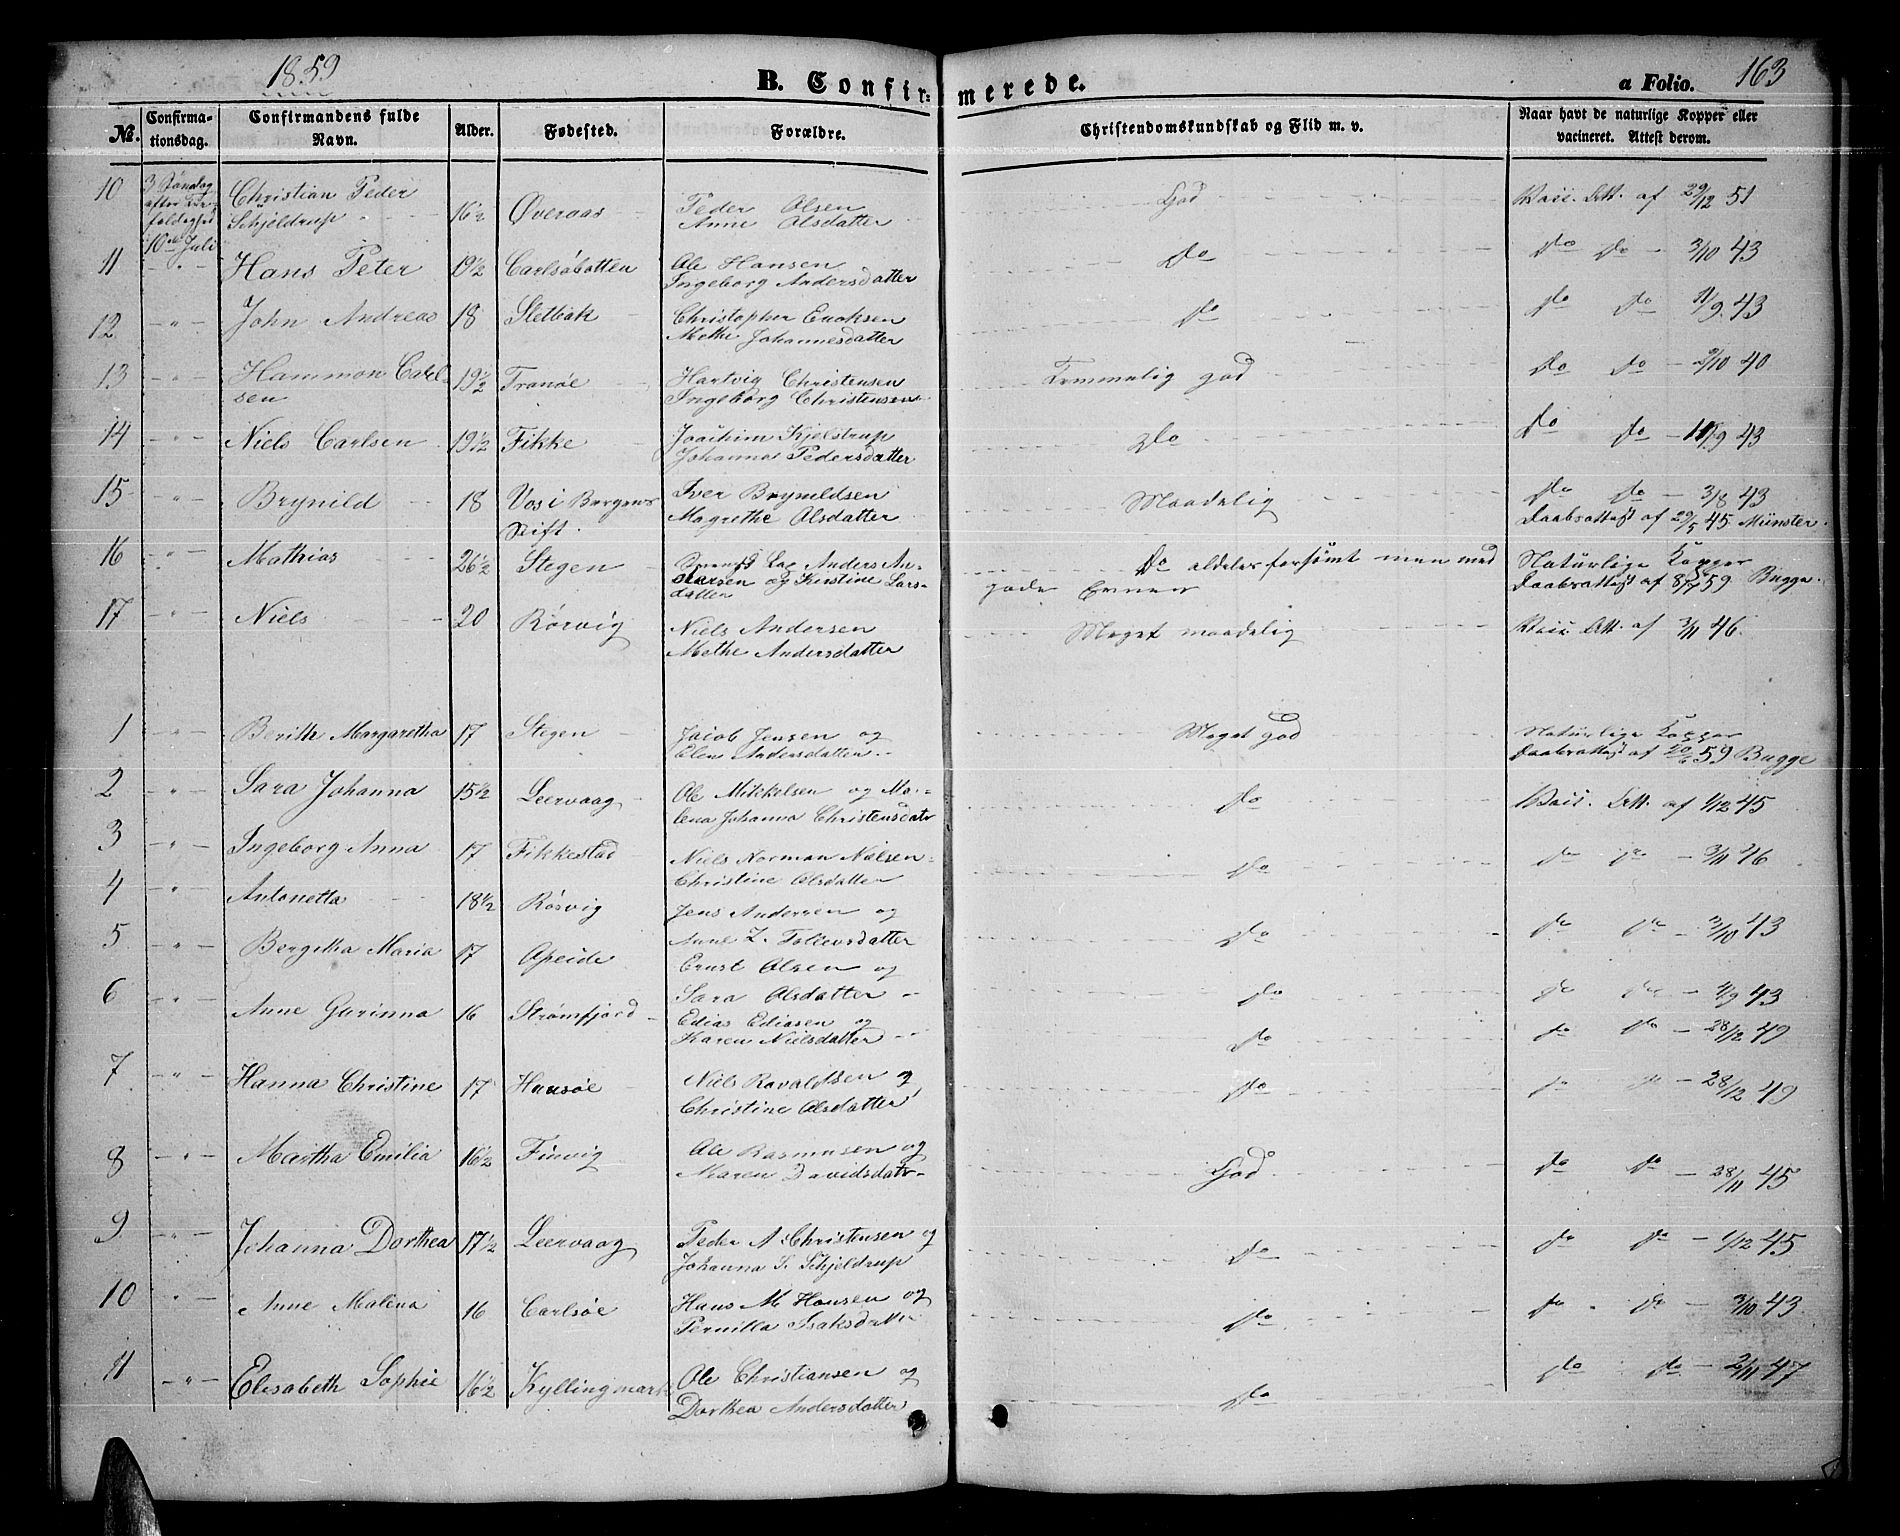 1859 B. Confirmerede. a Folio. 163
No. Confirmationsdag. Confirmandens fulde Navn. Alder. Fødested. Forældre. Christendomskundskab og Flid m. v. Naar havt de naturlige Kopper eller vacineret. Attest derom.
10 3 Søndag Christian Peder Schjeldrup 16½ Øveraas Peder Olsen Anne Olsdatter God Att. af 29/12 51
10de Juli
11 Hans Peter 19½ Carlsöbotten Ole Hansen Ingeborg Andersdatter Do Do Do 3/10 43
12 John Andreas 18 Stetbak Christopher Enoksen Methe Johannesdatter Do Do Do 11/9 43
13 Hammon Carlsen 19½ Tranöe Hartvig Christensen Ingeborg Christensen Temmelig god Do Do 40
14 Niels Carlsen 19½ Fikke Joachim Kjelstrup Johanna Pedersdatter Do Do Do 11/9 43
15 Brynild 18 Vos i Bergens Stift. Iver Brynildsen Magrethe Olsdatter Maadelig Do Do 3/8 43 Daabsattest af 29/5 45 Münster.
16 Mathias 26½ Stegen Lap Anders Andersen og Kirstine Larsdatter Do aldeles forsömt men med gode Evner Naturlige Kopper Daabsattest af 59 Bugge.
17 Niels 20 Rörvig Niels Andersen Methe Andersdatter Meget maadelig Att. af 3/11 46.
1 Berith Margaretha 17 Stegen Jacob Jensen og Elen Andersdatter Meget god Naturlige Kopper Daabsattest af 20/6 59 Bugge
2 Sara Johanna 15½ Leervaag Ole Mikkelsen og Malena Johanna Christensdatr Do Att. af 1/12 45
3 Ingeborg Anna 17 Fikkestad Niels Norman Nielsen Christine Olsdatter Do Do Do 3/11 46
4 Antonetta 18½ Rösvig Jens Andersen og Anne Z. Tollevsdatter Do Do Do 3/10 43
5 Bergitha Maria 17 Apeide Ernst Olsen og Sara Olsdatter Do Do Do 43
6 Anne Gurinna 16 Strömfjord Edias Ediasen og Karen Nielsdatter Do Do Do 28/12 49
7 Hanna Christine 17 Hansöe Niels Ravaldsen og Christine Olsdatter Do Do Do 28/12 49
8 Martha Emilia 16½ Finvig Ole Rasmusen og Maren Davidsdatr God Do Do 28/11 45
9 Johanna Dorthea 17½ Leervaag Peder A Christensen og Johanna S. Schjeldrup Do Do Do 1/12 45
10 Anne Malena 16 Carlsöe Hans M Hansen og Pernilla Isaksdatter Do Do Do 3/10 43.
11 Elisabeth Sophie 16½ Kyllingmark Ole Christiansen og Dorthea Andersdatter Do Do Do 2/11 47